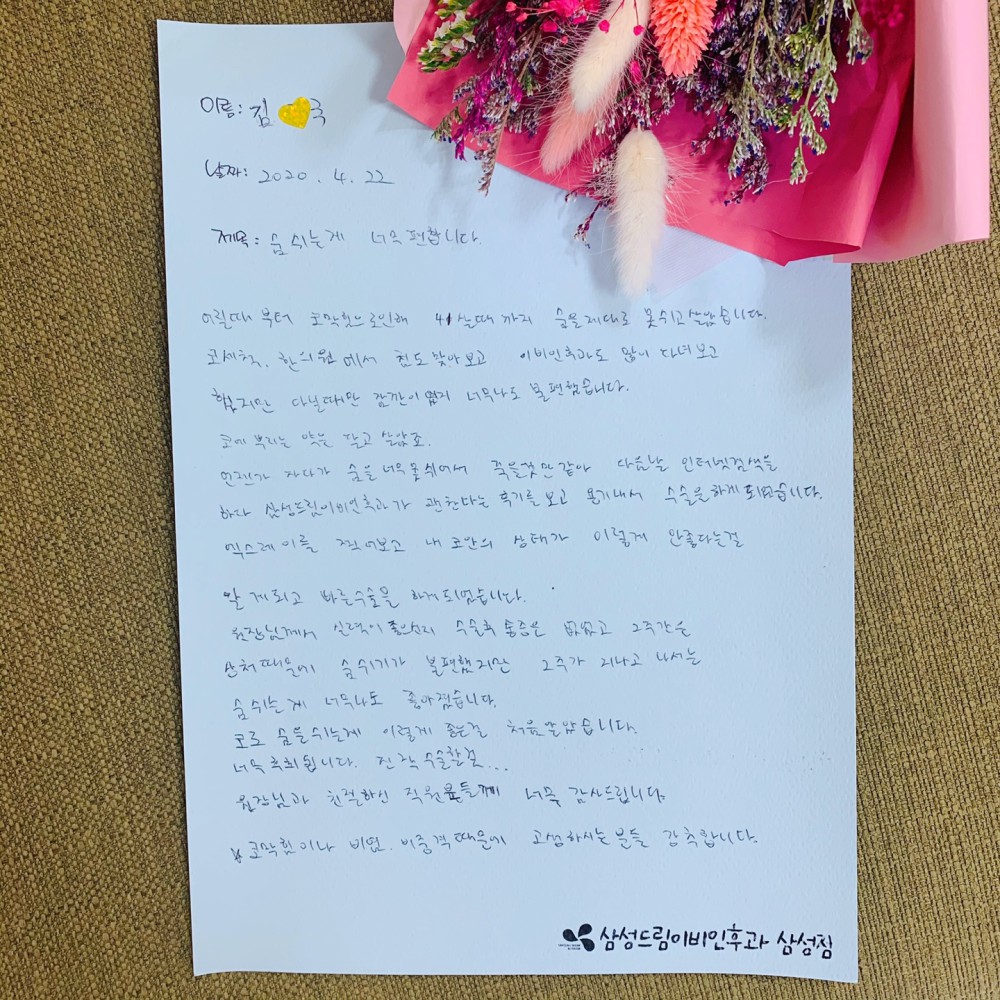 이름: 김 국
날짜: 2020. 4. 22
제목: 숨쉬는게 너무편합니다.
어릴때 부터 코막힘으로인해 41살때 까지 숨을제대로 못쉬고살았습니다.
코세척, 한의원에서 침도맞아보고 이비인후과도 많이 다녀보고
했지만 다닐때만 잠깐이였지 너무나도 불편했습니다.
코에 뿌리는 약을 달고 살았죠.
언젠가 자다가 숨을너무못쉬어서 죽을것만같아 다음날 인터넷검색을
하다 삼성드림이비인후과가 괜찮다는 후기를 보고 용기내서 수술을하게되었습니다.
엑스레이를 찍어보고 내 코안의 상태가 이렇게 안좋다는걸
알게되고 바른수술을 하게되었습니다.
원장님께서 실력이 좋으신지 수술후 통증은 없었고 2주간은
상처때문에 숨쉬기가 불편했지만 2주가 지나고 나서는
숨쉬는게 너무나도 좋아졌습니다.
코로 숨을쉬는게 이렇게 좋은걸 처음알았습니다.
너무후회됩니다. 진작수술할걸...
원장님과 친절하신 직원분들께 너무 감사드립니다.
코막힘이나 비염. 비중격때문에 고생하시는분들 강추합니다.
삼성드림이비인후과 삼성점